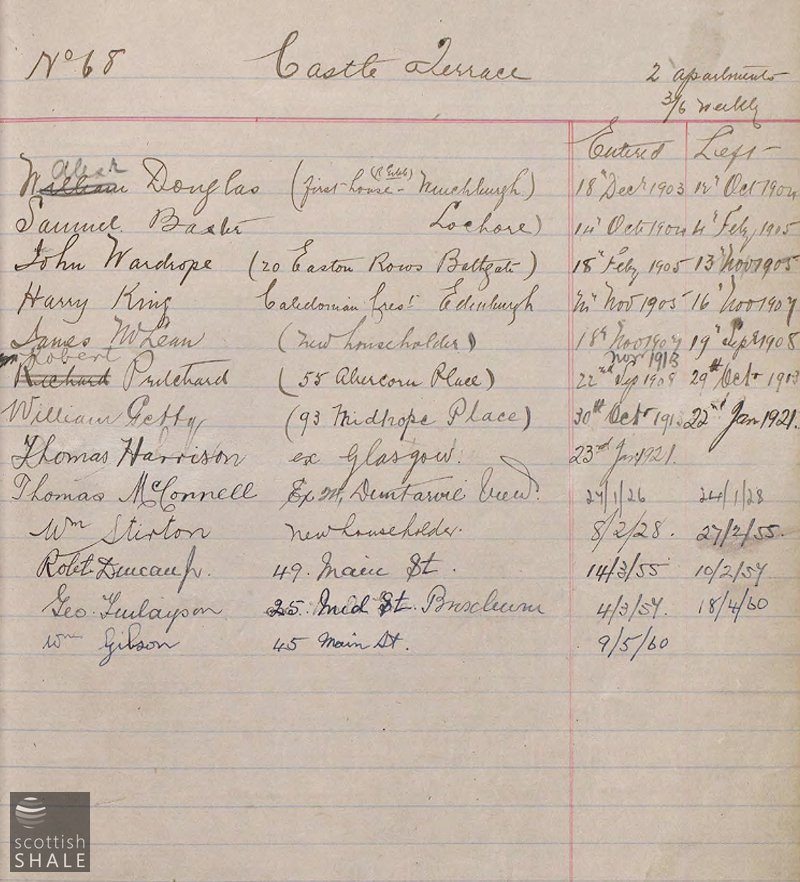 No 68 Castle Terrace 2 apartments
3/6 weekly
Entered Left
Alexr
William Douglas (first house - Winchburgh) 18th Decr 1903 12th Octr 1904
Samuel Baxter Lochore) 14th Octr 1904 4th Feby 1905
John Wardrope (20 Easton Rows Bathgate) 18th Feby 1905 13th Nov 1905
Harry King Caledonian Cres. Edinburgh Nov 1905 16th Nov 1907
James McLean (new householder) 18th Nov 1907 19th Sept 1908
Robert Nov 1913
Richard Pritchard (55 Abercorn Place) 22nd Sep 1908 29th Octr 1913
William Getty (93 Midhope Place) 30th Octr 1913 22nd Jan 1921.
Thomas Harrison ex Glasgow. 23rd Jan 1921.
Thomas McConnell Ex Duntarvie View. 27/1/26 24/1/28
Wm Stirton New householder. 8/2/28. 27/2/55.
Robt. Duncan Jr. 49. Main St. 14/3/55 10/2/57
Geo. Finlayson 25. Mid St. Broxburn 4/3/57. 18/4/60
Wm Gibson 45 Main St. 9/5/60
scottish
SHALE